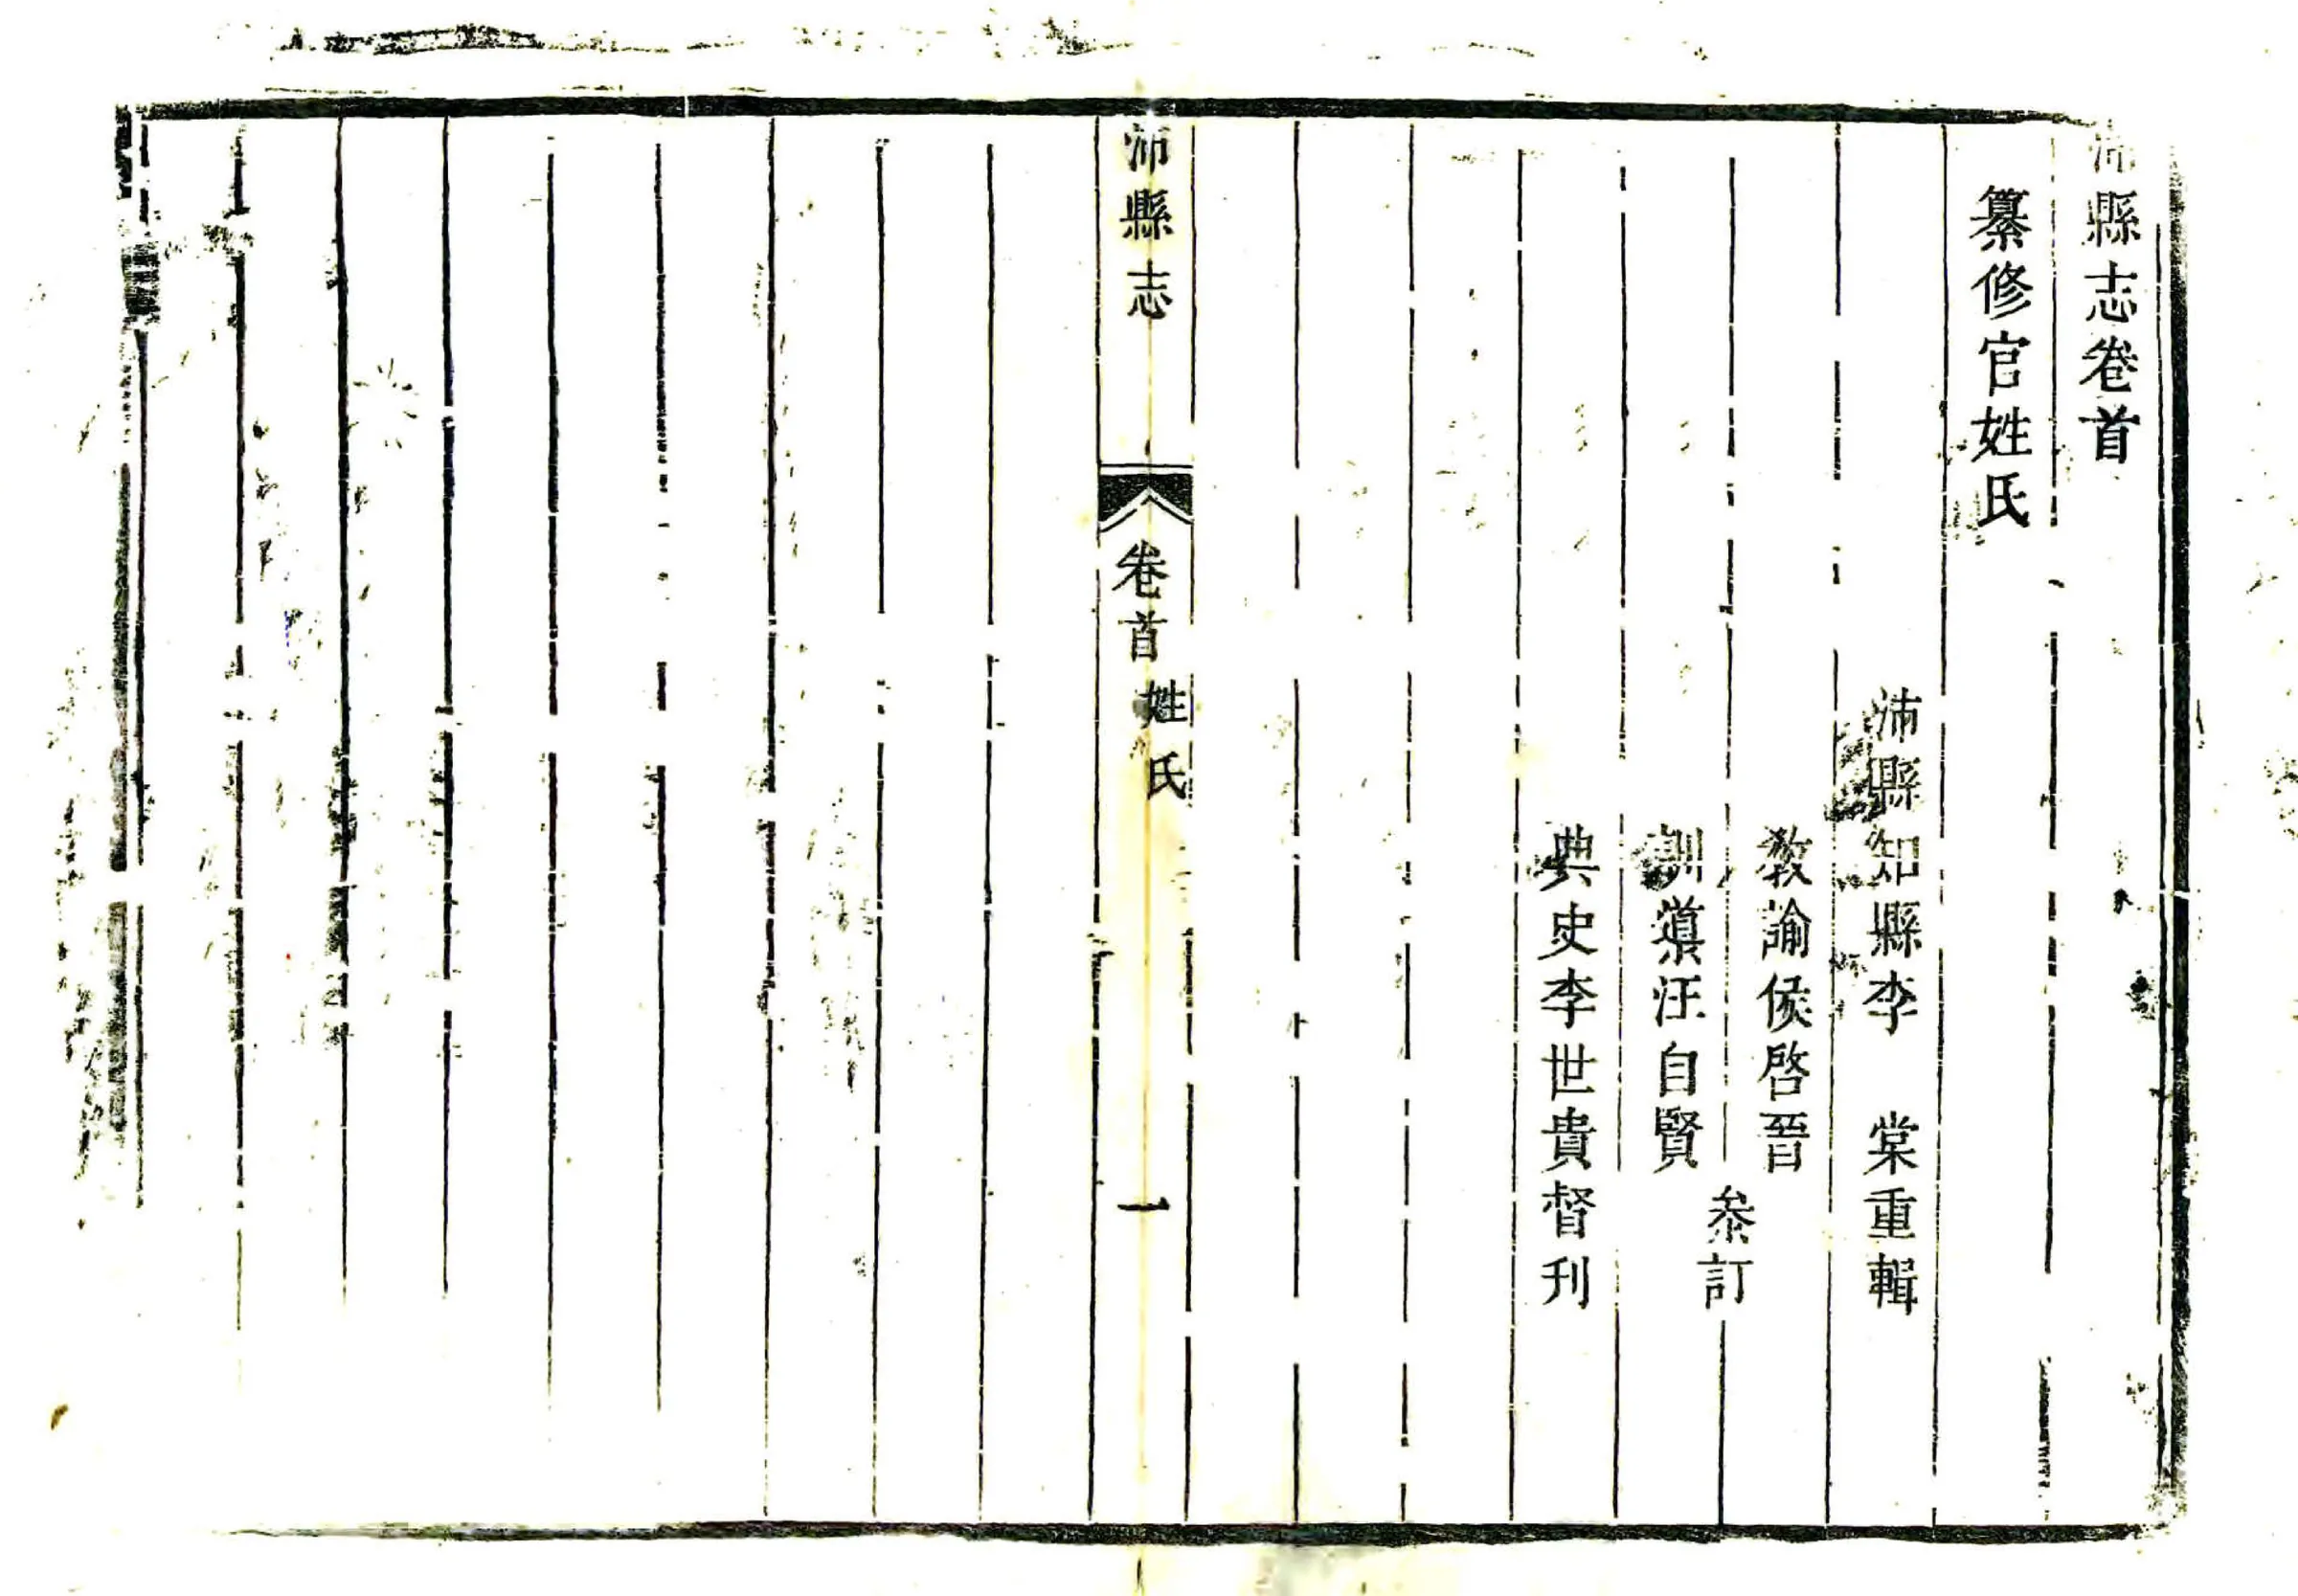 沛縣志卷首
纂修官姓氏
沛縣知縣李　棠重輯
教諭侯啓晉
參訂
訓導汪自賢
典史李世貴督刊
沛縣志
卷首
姓氏
一